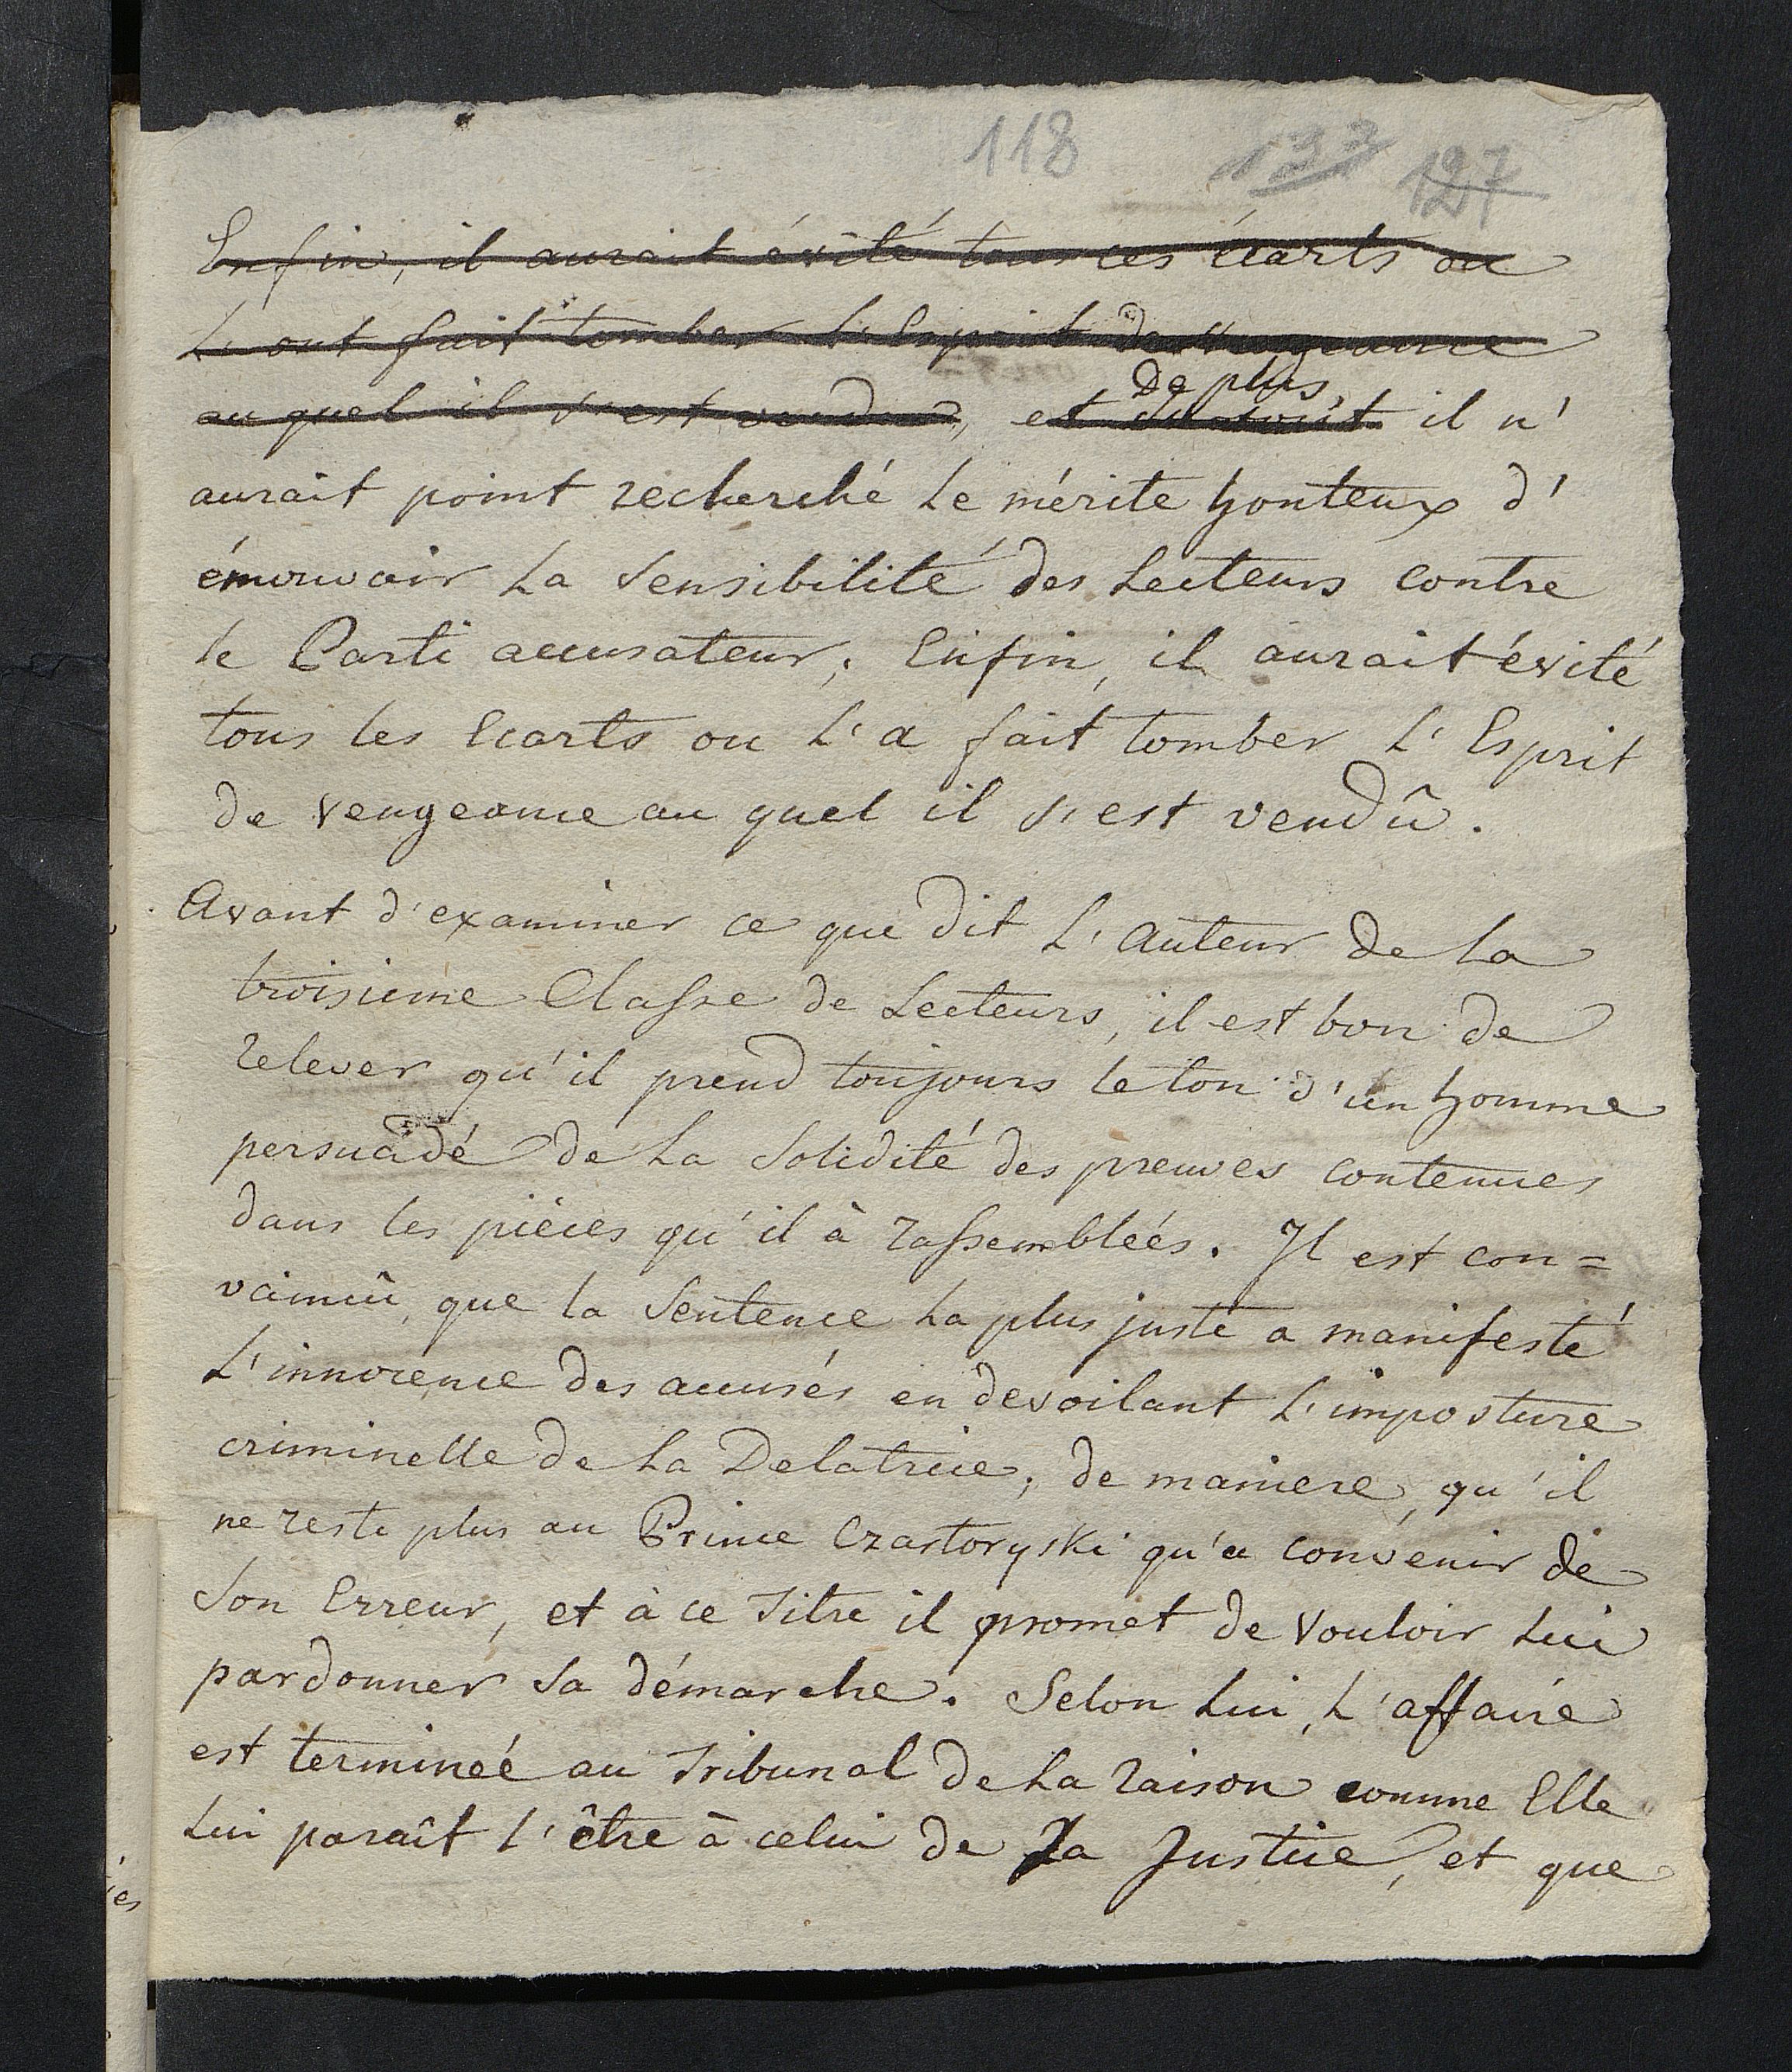 118 133 127
Enfin, il aurait évité tous ces écarts ou
L'ont fait tomber L'Esprit de Vengeance
au quel il s'est vendu, et surtout De plus, il n'
aurait point recherché Le mérite honteux d'
émouvoir La Sensibilité des Lecteurs contre
le Parti accusateur; Enfin, il aurait évité
tous les Ecarts ou L'a fait tomber L'Esprit
de vengeance au quel il s'est vendû.
Avant d'examiner ce que dit L'Auteur de La
troisieme Classe de Lecteurs, il est bon de
relever qu'il prend toujours le ton d'un homme
persuadé de La Solidité des preuves contenues
dans les pièces qu'il à rassembleés. Il est con=
vaincû, que la Sentence La plus juste a manifesté
L'innocence des accusés en devoilant L'imposture
criminelle de La Delatrice; de maniere, qu'il
ne reste plus au Prince Czartoryski qu'a convenir de
Son Erreur, et à ce Titre il promet de Vouloir Lui
pardonner Sa démarche. Selon Lui, L'affaire
est termineé au Tribunal de La raison comme Elle
Lui paraît L'être à celui de La Justice, et que
ies